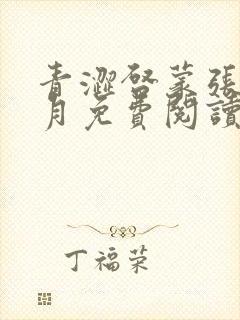 青澀啓蒙張
月免費閱讀
丁福荣